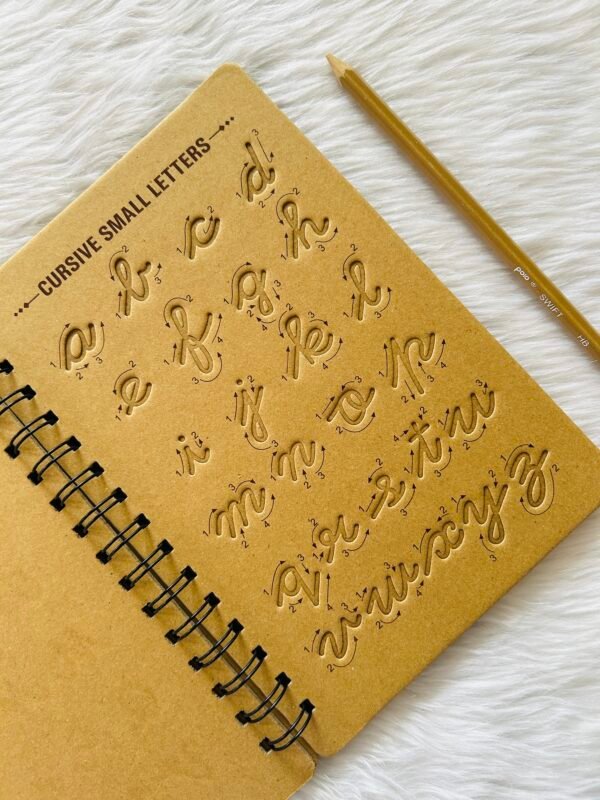 CURSIVE SMALL LETTERS
a b c d
e f g h
i j k l
m n o p
q r s t u
v w x y z
polo ® SWIFT HB